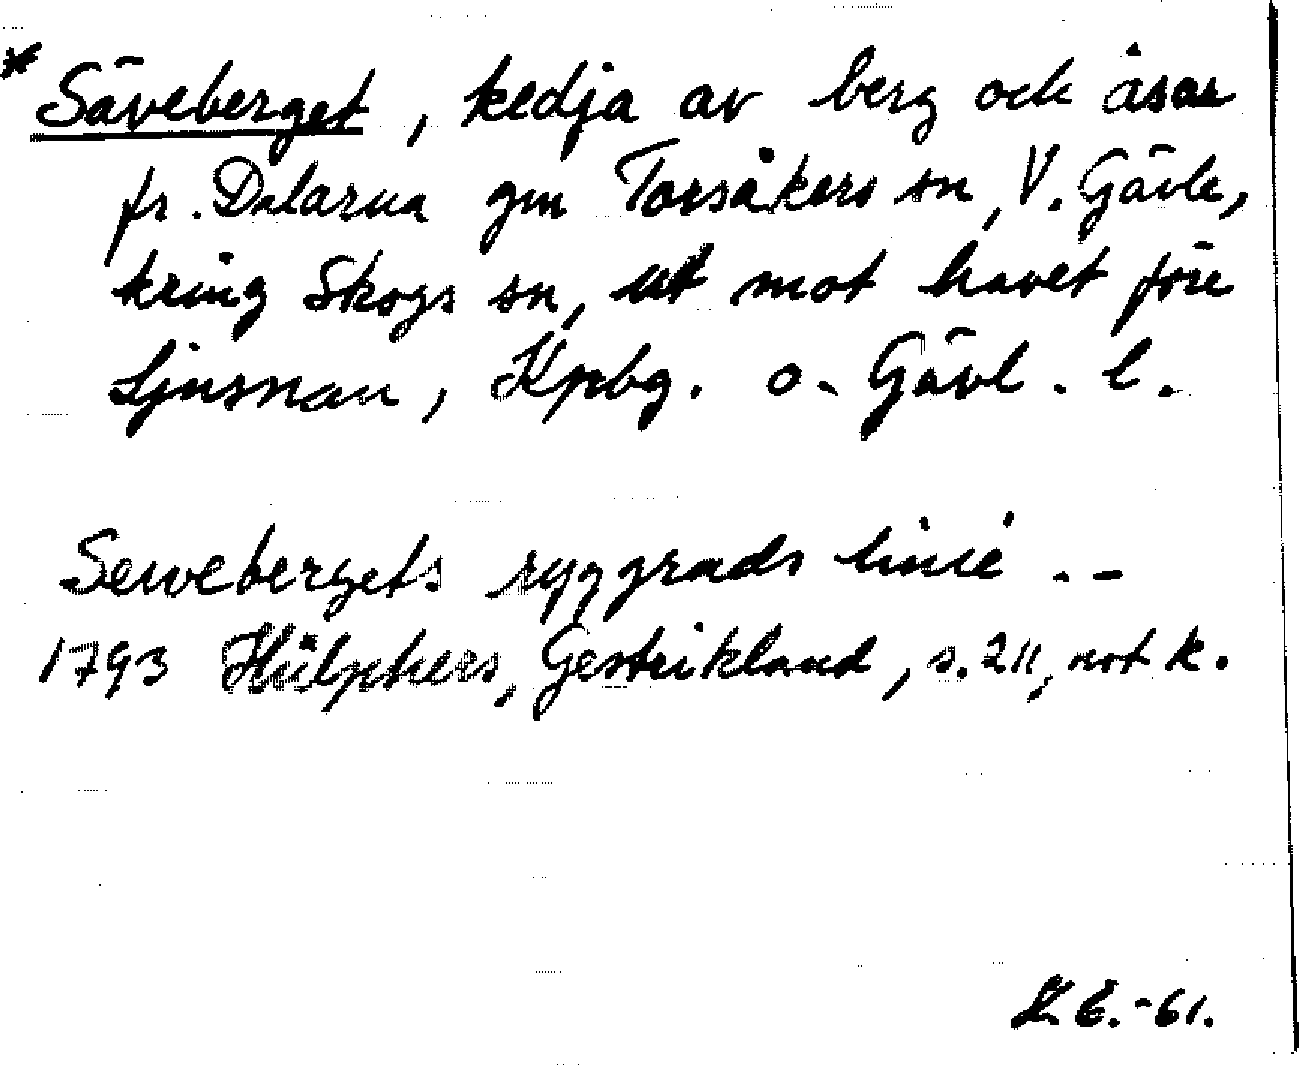 * Säveberget, kedja av berg och åsar
fr. Dalarna gm Torsåkers sn, V. Gävle,
kring Skogs sn, ut mot havet före
Ljusnan, Kpbg. o. Gävl. l.
Sevebergets ryggrads linie . –
1793 Hülphers, Gestrikland, s. 211, not k.
-61.